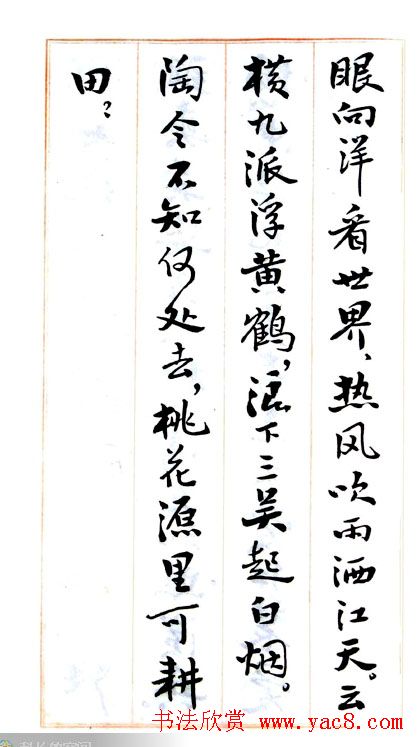 眼向洋看世界、热风吹雨洒江天。云
横九派浮黄鹤，浪下三吴起白烟。
陶令不知何处去，桃花源里可耕
田？
书法欣赏 www.yac8.com